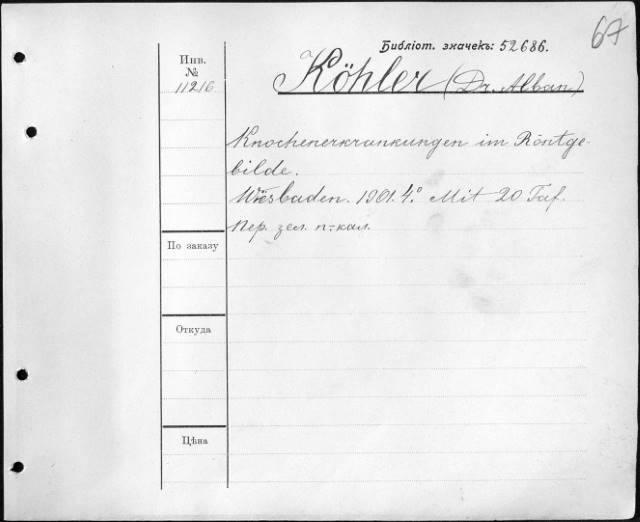 67
Библіот. значекъ: 52686.
Инв.
№
11216
Köhler (Dr. Alban)
Knochenerkrankungen im Röntge-
bilde.
Wiesbaden. 1901. 4° Mit 20 Taf.
Пер. зел. п.-кал.
По заказу
Откуда
Цѣна